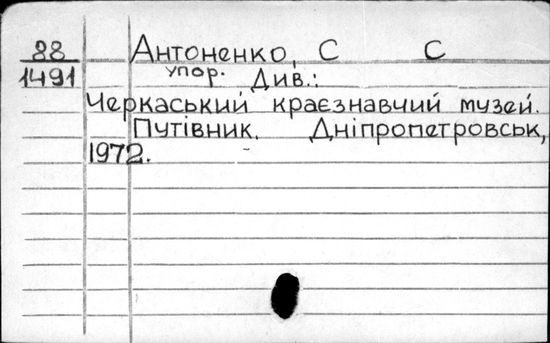 88 Антоненко, С С
1491 упор. Див.:
Черкаський краєзнавчий музей.
Путівник. Дніпропетровськ,
1972.